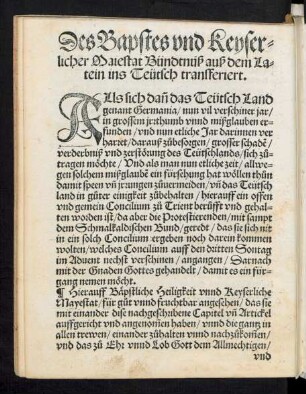 Des Bapstes vnd Keyser-
licher Maiestat Bündtniß auß dem La-
tein ins Teütsch transferiert.
ALls sich dañ das Teütsch Land
genant Germania / nun vil verschiner jar /
in grossem jrrthumb vnnd mißglauben er-
funden / vnd nun etliche Jar darinnen ver
harret / darauß zůbesorgen / grosser schade /
verderbnuß vnd zerstörung des Teütschlands / sich zů-
tragen möcht / Vnd als man nun etliche zeit / allwe-
gen solchem mißglaubē ein fürsehung hat wöllen thůn
damit speen vñ jrrungen zůuermeiden / vñ das Teütsch
land in gůter einigkeit zůbehalten / hierauff ein offen
vnd gemein Concilium zů Trient berůfft vnd gehal-
ten worden ist / da aber die Protestierenden / mit sampt
dem Schmalkaldischen Bund / geredt / das sie sich nit
in ein solch Concilium ergeben noch darein kommen
wolten / welches Concilium auff den dritten Sontag
im Aduent nechst verschinen / angangen / Darnach
mit der Gnaden Gottes gehandelt / damit es ein für-
gang nemen möcht.
¶ Hierauff Bäpstliche Heiligkeit vnnd Keyserliche
Mayestat / für gůt vnnd fruchtbar angesehen / das sie
mit einander dise nachgeschribene Capitel vñ Artickel
auffgericht vnd angenom̄en haben / vnnd die gantz in
allen trewen / einander zůhalten vnnd nachzůkom̄en /
vnd das zů Ehr vnnd Lob Gott dem Allmechtigen /
vnd